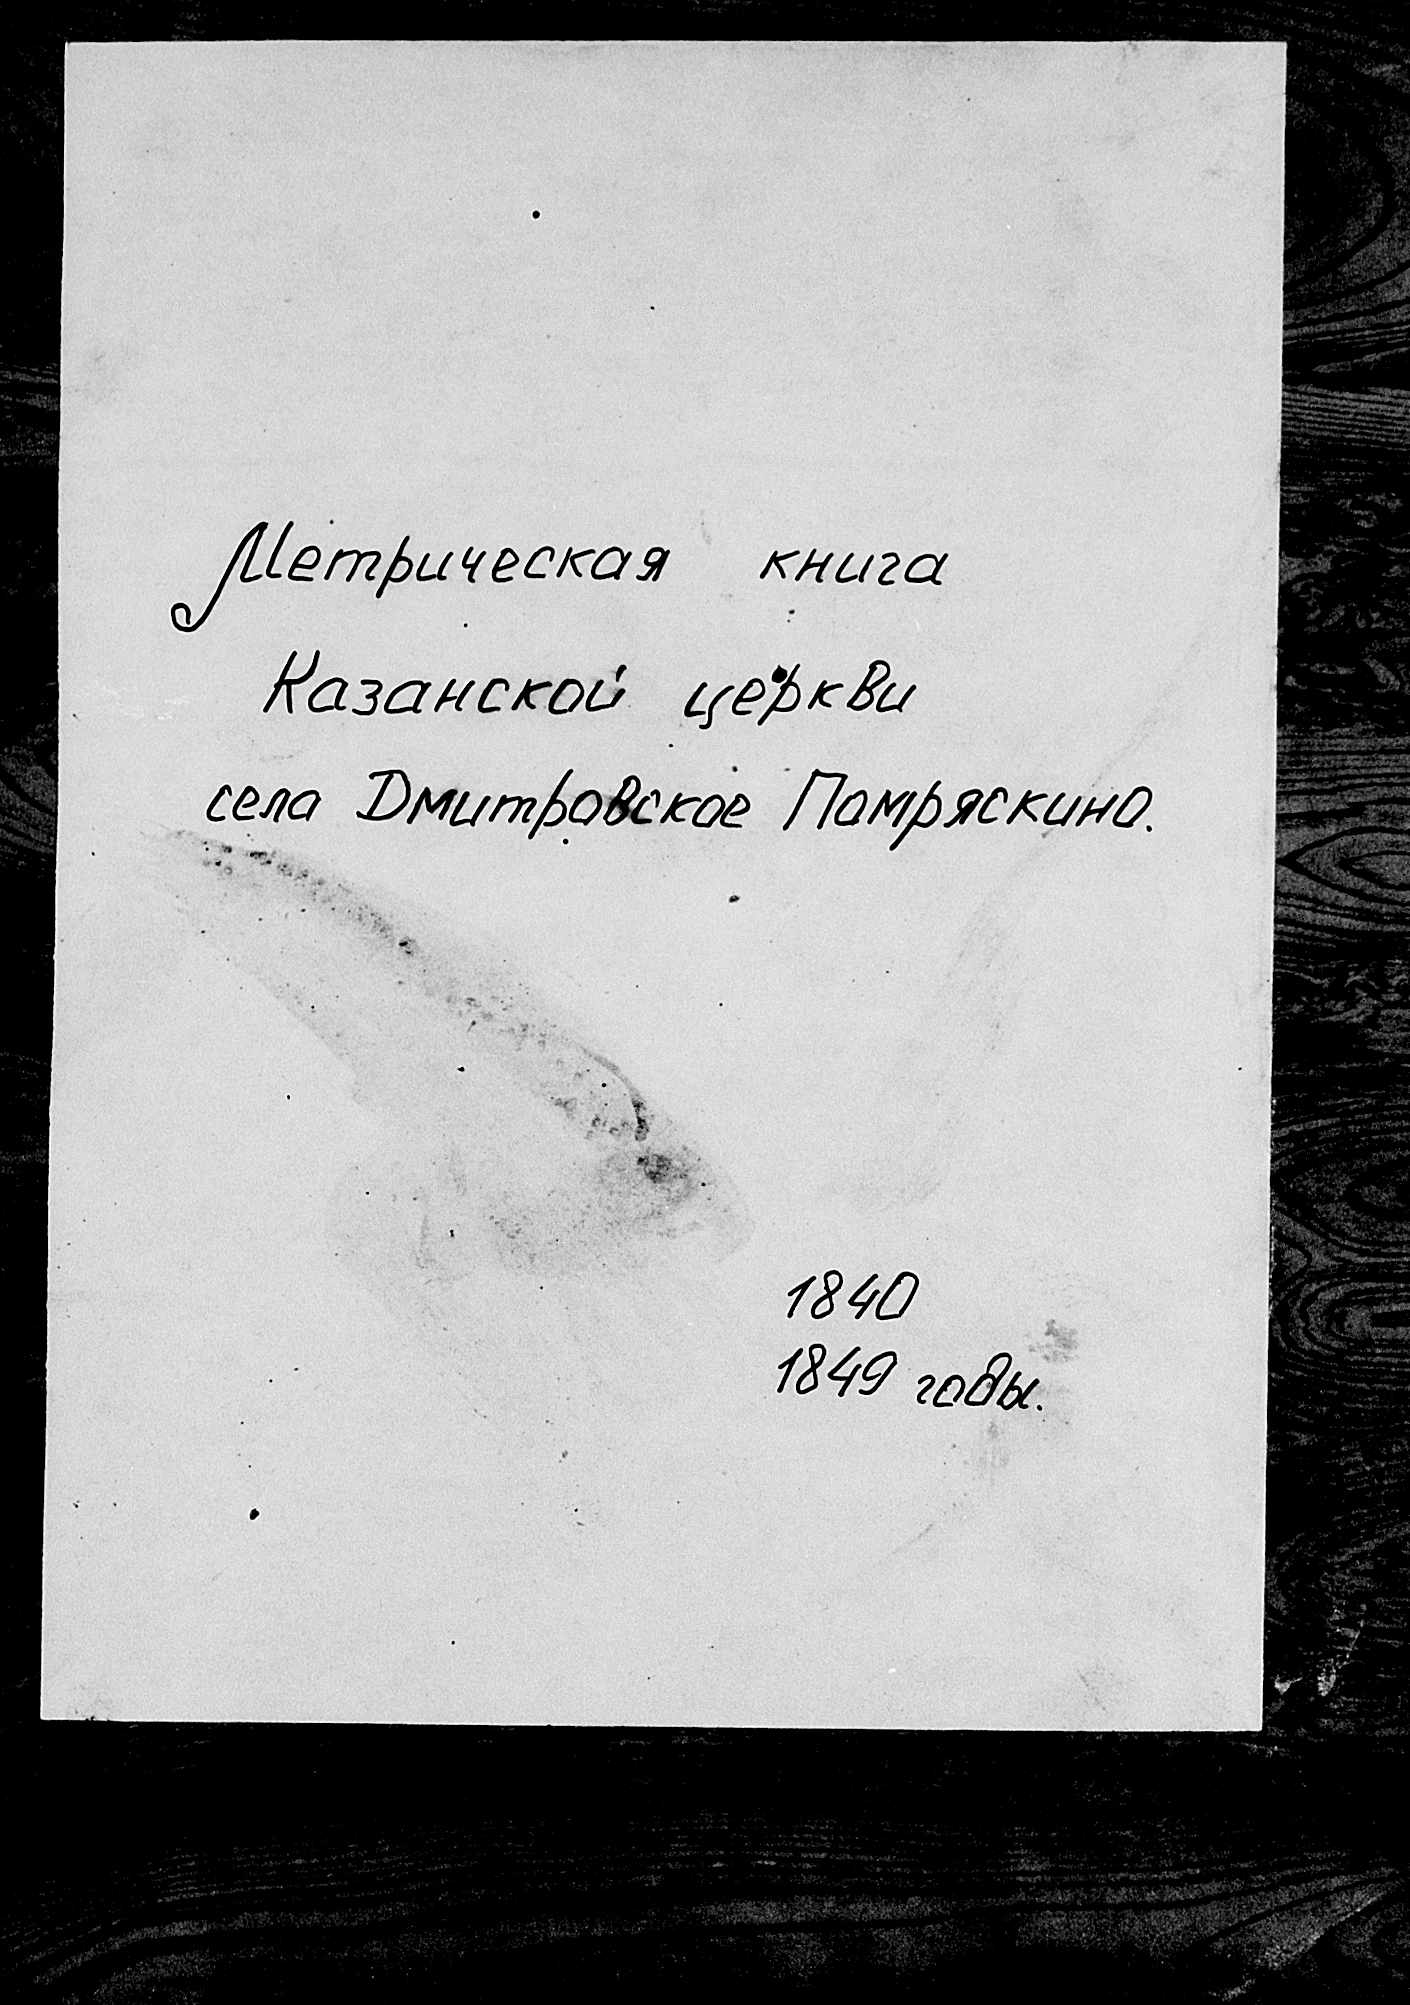 Метрическая книга
Казанской церкви
села Дмитровское Помряскино.
1840
1849 годы.